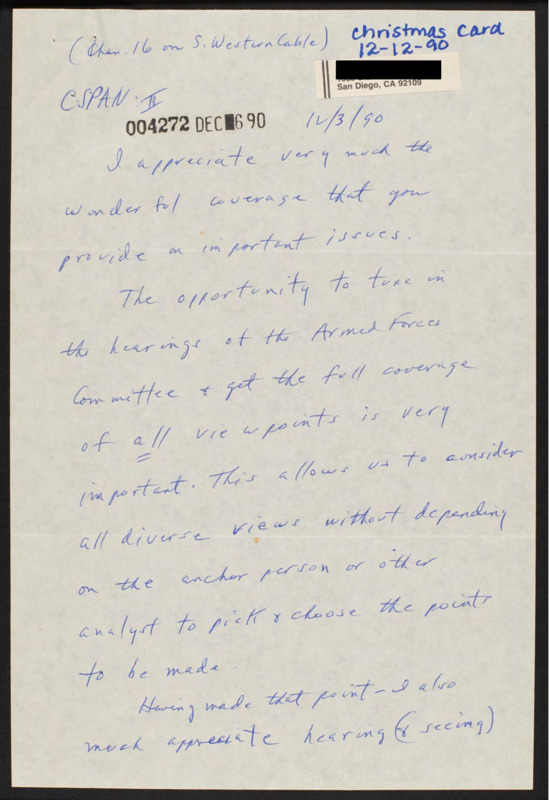 (Chan. 16 on S. Western Cable)
Christmas Card
12-12-90
San Diego, CA 92109
CSPAN - II
004272 DEC 6 90
12/3/90
I appreciate very much the
wonderful coverage that you
provide on important issues.
The opportunity to tune in
the hearings of the Armed Forces
Committee & get the full coverage
of all viewpoints is very
important. This allows us to consider
all diverse views without depending
on the anchor person or other
analyst to pick & choose the points
to be made.
Having made that point - I also
much appreciate hearing (& seeing)